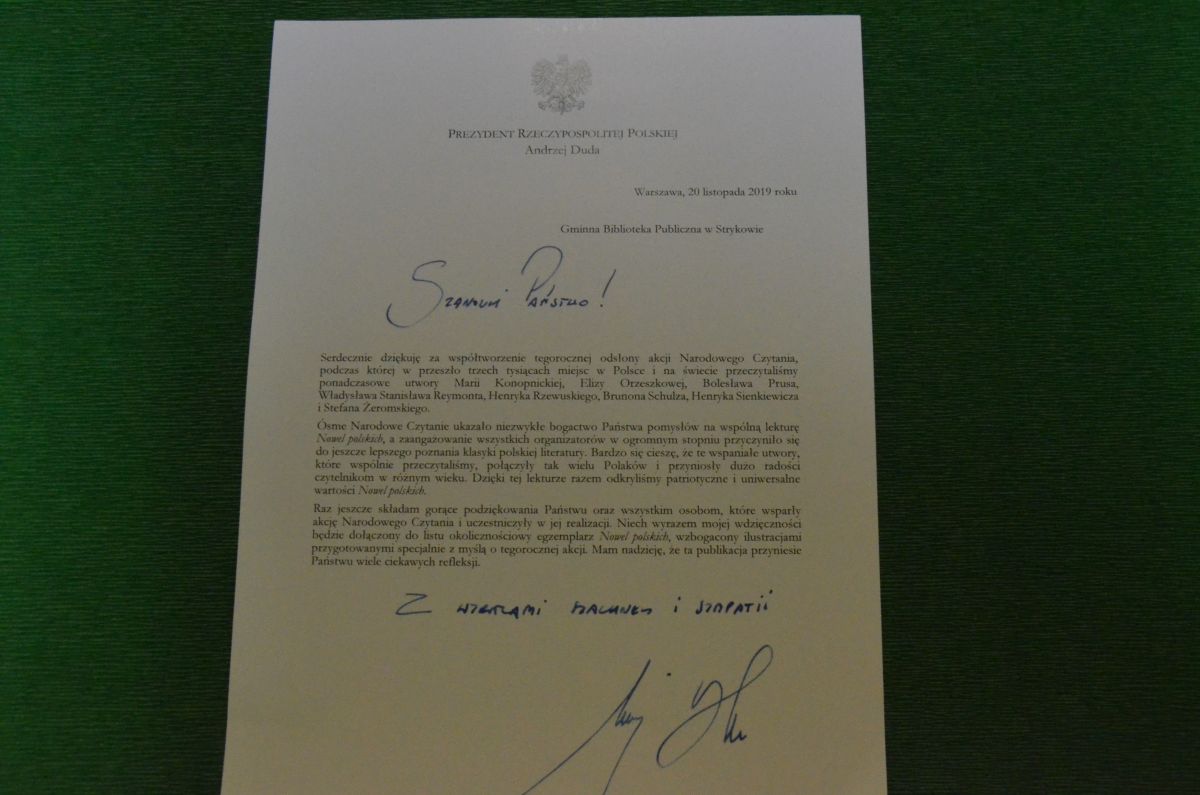 PREZYDENT RZECZYPOSPOLITEJ POLSKIEJ
Andrzej Duda
Warszawa, 20 listopada 2019 roku
Gminna Biblioteka Publiczna w Strykowie
Szanowni Państwo!
Serdecznie dziękuję za współtworzenie tegorocznej odsłony akcji Narodowego Czytania,
podczas której w przeszło trzech tysiącach miejsc w Polsce i na świecie przeczytaliśmy
ponadczasowe utwory Marii Konopnickiej, Elizy Orzeszkowej, Bolesława Prusa,
Władysława Stanisława Reymonta, Henryka Rzewuskiego, Brunona Schulza, Henryka Sienkiewicza
i Stefana Żeromskiego.
Ósme Narodowe Czytanie ukazało niezwykłe bogactwo Państwa pomysłów na wspólną lekturę
Nowel polskich, a zaangażowanie wszystkich organizatorów w ogromnym stopniu przyczyniło się
do jeszcze lepszego poznania klasyki polskiej literatury. Bardzo się cieszę, że te wspaniałe utwory,
które wspólnie przeczytaliśmy, połączyły tak wielu Polaków i przyniosły dużo radości
czytelnikom w różnym wieku. Dzięki tej lekturze razem odkryliśmy patriotyczne i uniwersalne
wartości Nowel polskich.
Raz jeszcze składam gorące podziękowania Państwu oraz wszystkim osobom, które wsparły
akcję Narodowego Czytania i uczestniczyły w jej realizacji. Niech wyrazem mojej wdzięczności
będzie dołączony do listu okolicznościowy egzemplarz Nowel polskich, wzbogacony ilustracjami
przygotowanymi specjalnie z myślą o tegorocznej akcji. Mam nadzieję, że ta publikacja przyniesie
Państwu wiele ciekawych refleksji.
Z wyrazami szacunku i sympatii